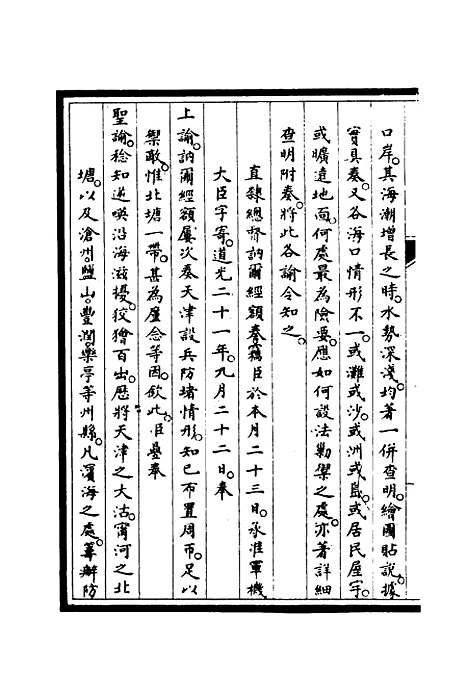 口岸。其海潮增長之時。水勢深淺。均著一併查明。繪圖貼說。據
實具奏。又各海口情形不一。或灘或沙。或洲或島。或居民屋宇。
或曠遠地面。何處最為險要。應如何設法勦禦之處。亦著詳細
查明附奏。將此各諭令知之。
直隸總督訥爾經額奏。竊臣於本月二十三日。承准軍機
大臣字寄。道光二十一年。九月二十二日。奉
上諭。訥爾經額屢次奏天津設兵防堵情形。知已布置周帀。足以
禦敵。惟北塘一帶。甚為廑念等因。欽此。臣疊奉
聖諭。稔知逆㗆沿海滋擾。狡獪百出。歷將天津之大沽。甯河之北
塘。以及滄州。鹽山。豐潤。樂亭等州縣。凡濱海之處。籌辦防